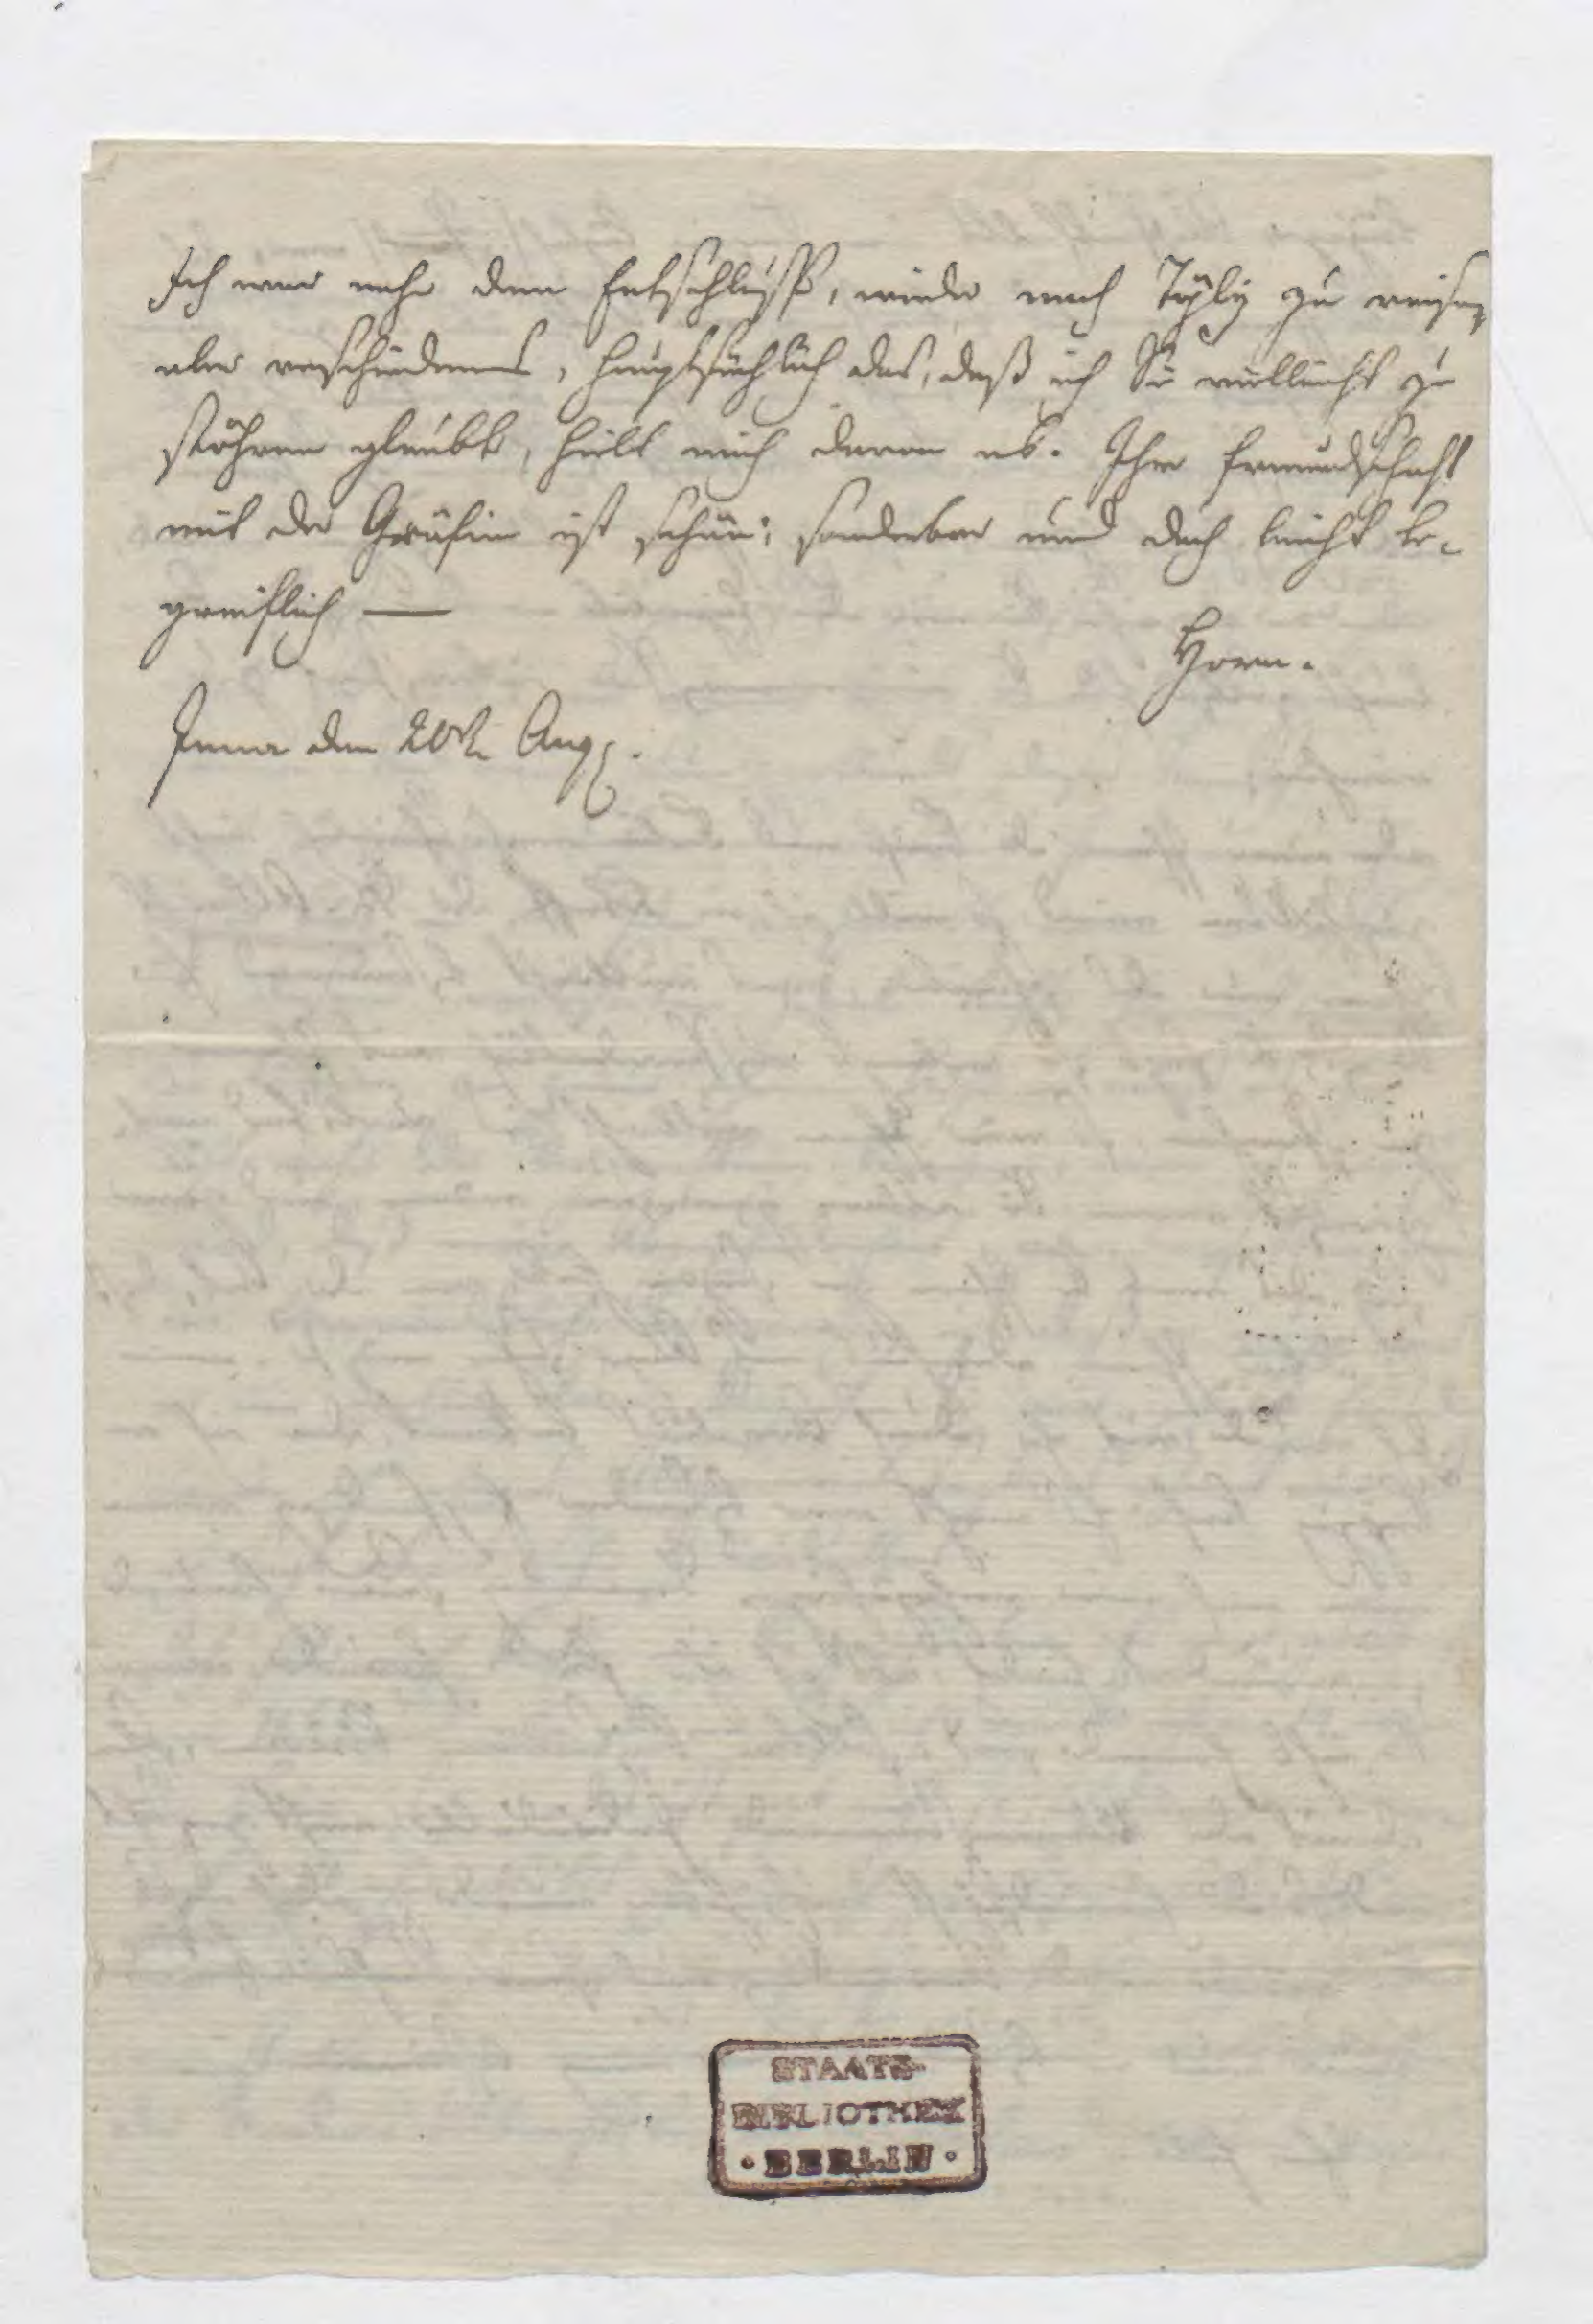 Ich war nahe dem Entschluss, wieder nach Töplitz zu reisen,
aber verschiedenes, hauptsächlich das, daß ich Sie vielleicht zu
stöhren glaubte, hielt mich davon ab. Ihre Freundschaft
mit der Gräfin ist schön; sonderbar und doch leicht be-
greiflich —
Horn.
Jena den 20t Aug.
STAATS-
BIBLIOTHEK
· BERLIN ·